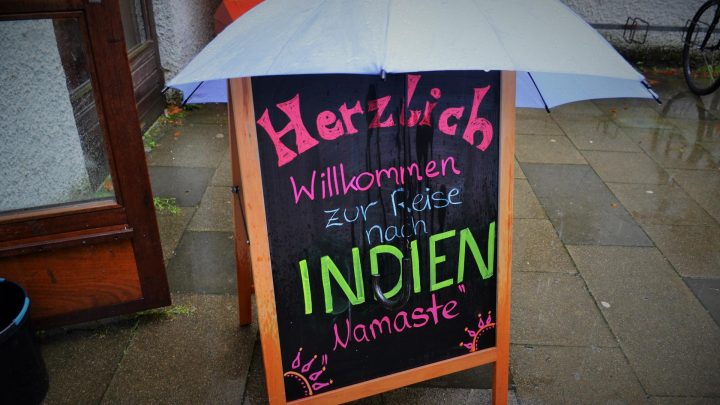 Herzlich
Willkommen
zur Reise
nach
INDIEN
Namaste"